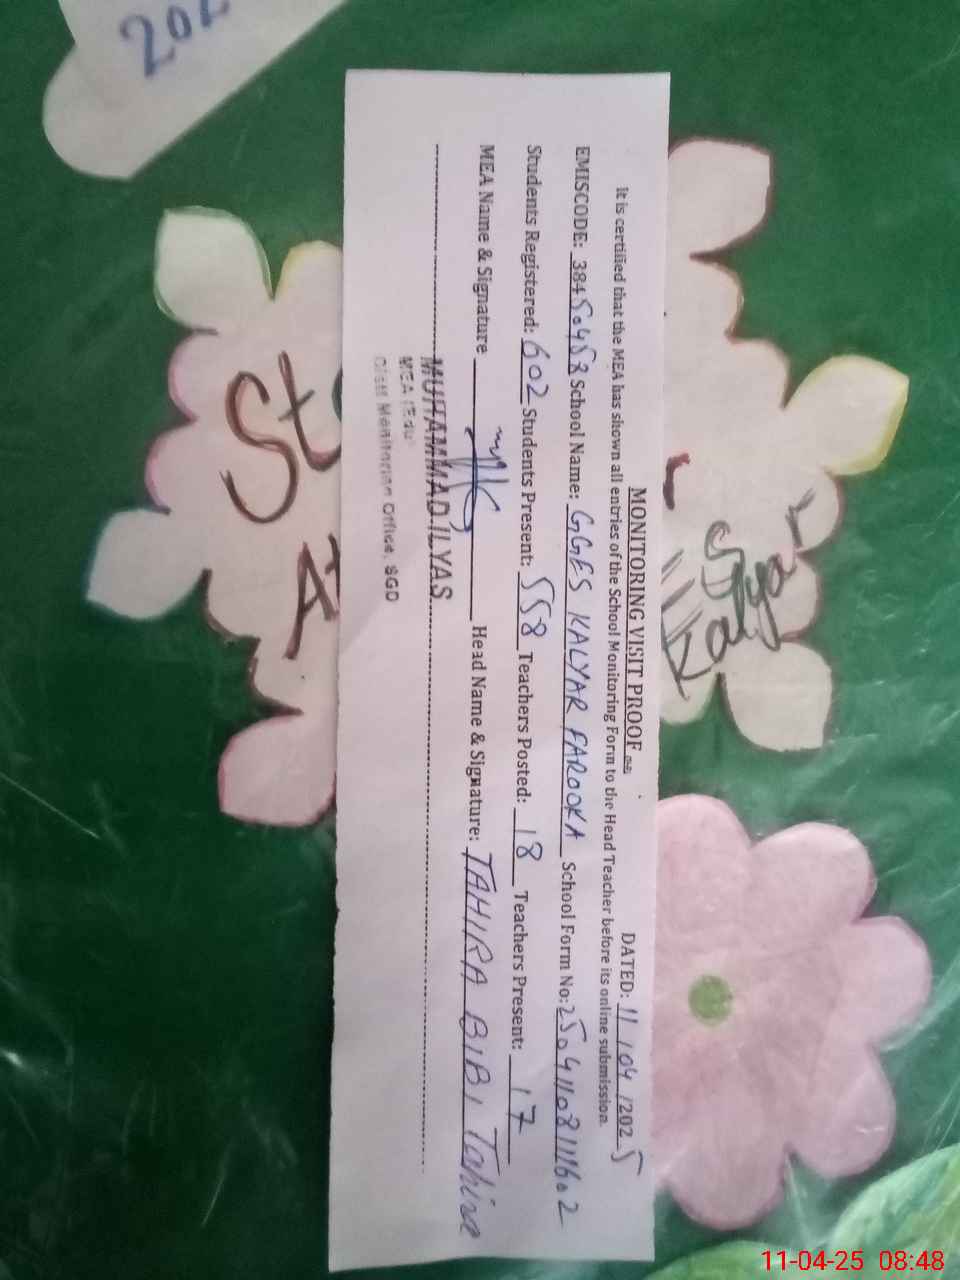 MONITORING VISIT PROOF
DATED: 11/04/2025
It is certified that the MEA has shown all entries of the School Monitoring Form to the Head Teacher before its online submission.
EMISCODE: 38450458 School Name: GGES KALYAR FAROOKA School Form No: 250411081111602
Students Registered: 602 Students Present: 558 Teachers Posted: 18 Teachers Present: 17
MEA Name & Signature Head Name & Signature: TAHIRA BIBI Tahira
MUHAMMAD ILYAS
MEA (Edu)
Monitoring Office, SGD
St
A
Kalyar
11-04-25 08:48